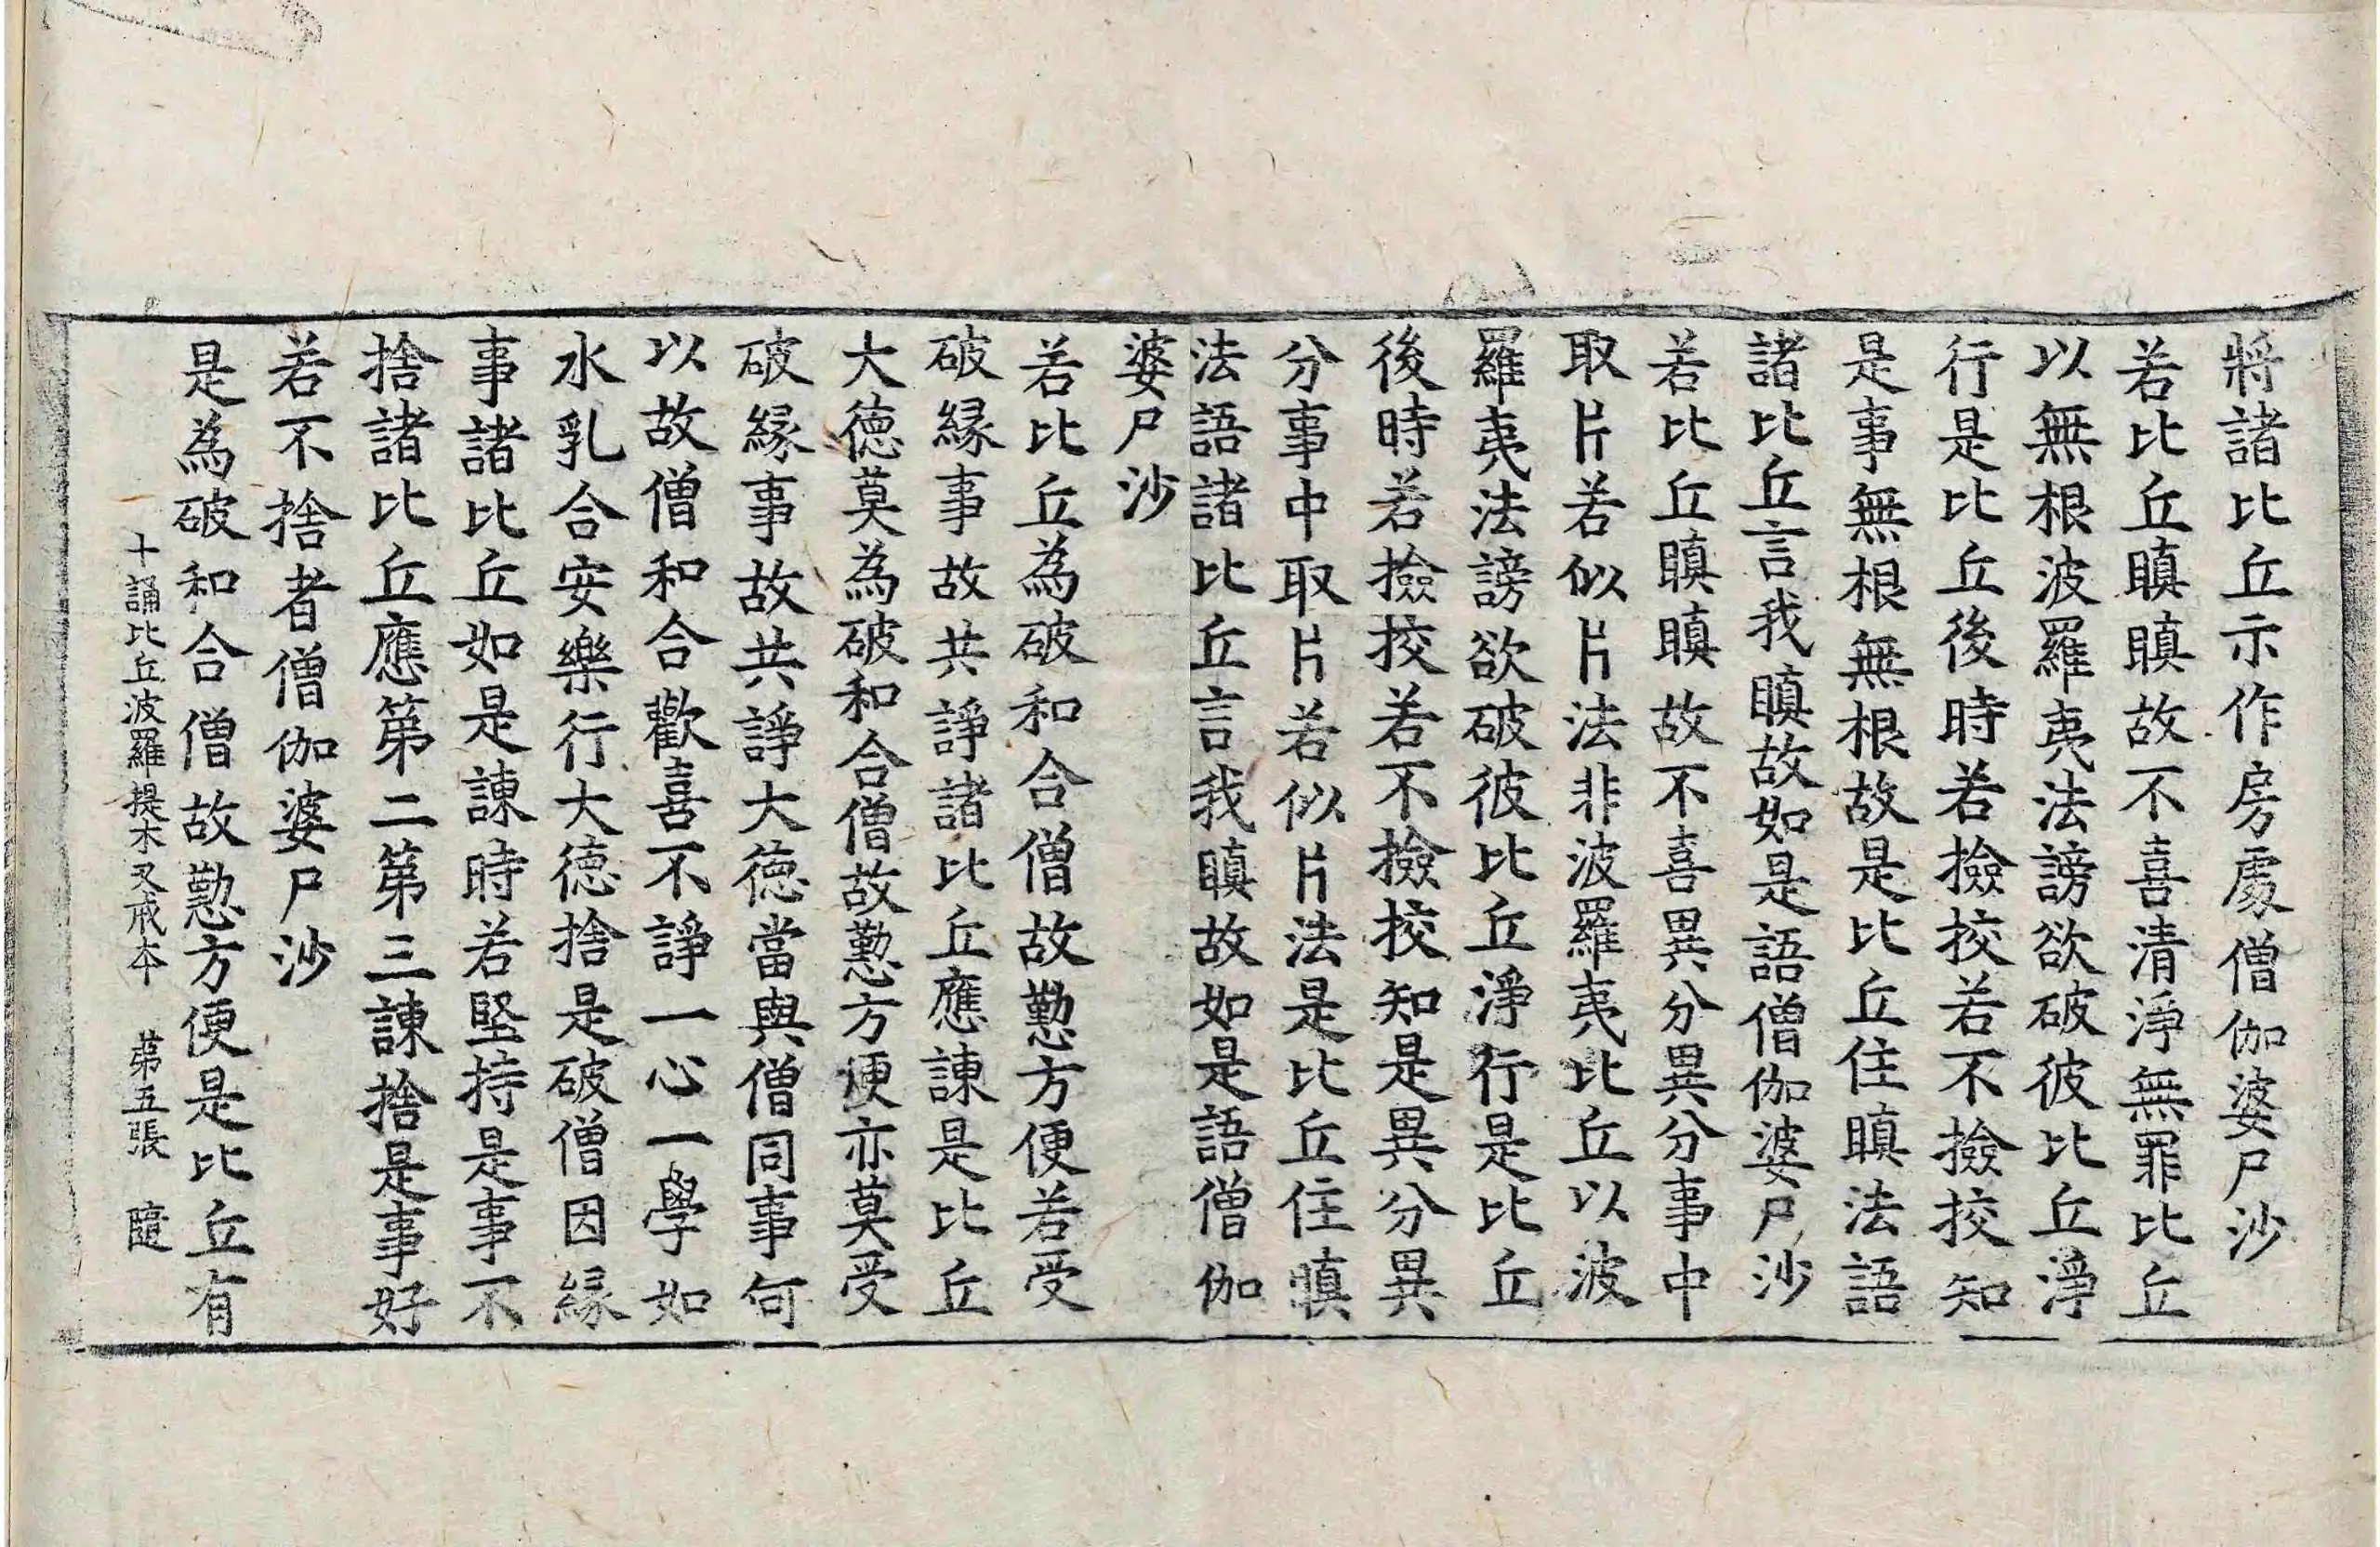 將諸比丘示作房處僧伽婆尸沙
若比丘瞋瞋故不喜清淨無罪比丘
以無根波羅夷法謗欲破彼比丘淨
行是比丘後時若撿挍若不撿挍知
是事無根無根故是比丘住瞋法語
諸比丘言我瞋故如是語僧伽婆尸沙
若比丘瞋瞋故不喜異分異分事中
取片若似片法非波羅夷比丘以波
羅夷法謗欲破彼比丘淨行是比丘
後時若撿挍若不撿挍知是異分異
分事中取片若似片法是比丘住瞋
法語諸比丘言我瞋故如是語僧伽
婆尸沙
若比丘為破和合僧故懃方便若受
破緣事故共諍諸比丘應諫是比丘
大德莫為破和合僧故懃方便亦莫受
破緣事故共諍大德當與僧同事何
以故僧和合歡喜不諍一心一學如
水乳合安樂行大德捨是破僧因緣
事諸比丘如是諫時若堅持是事不
捨諸比丘應第二第三諫捨是事好
若不捨者僧伽婆尸沙
是為破和合僧故懃方便是比丘有
十誦比丘波羅提木叉戒本 第五張 隨